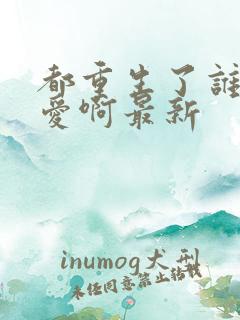 都重生了誰
愛啊最新
inumog犬刑
未经同意禁止转载